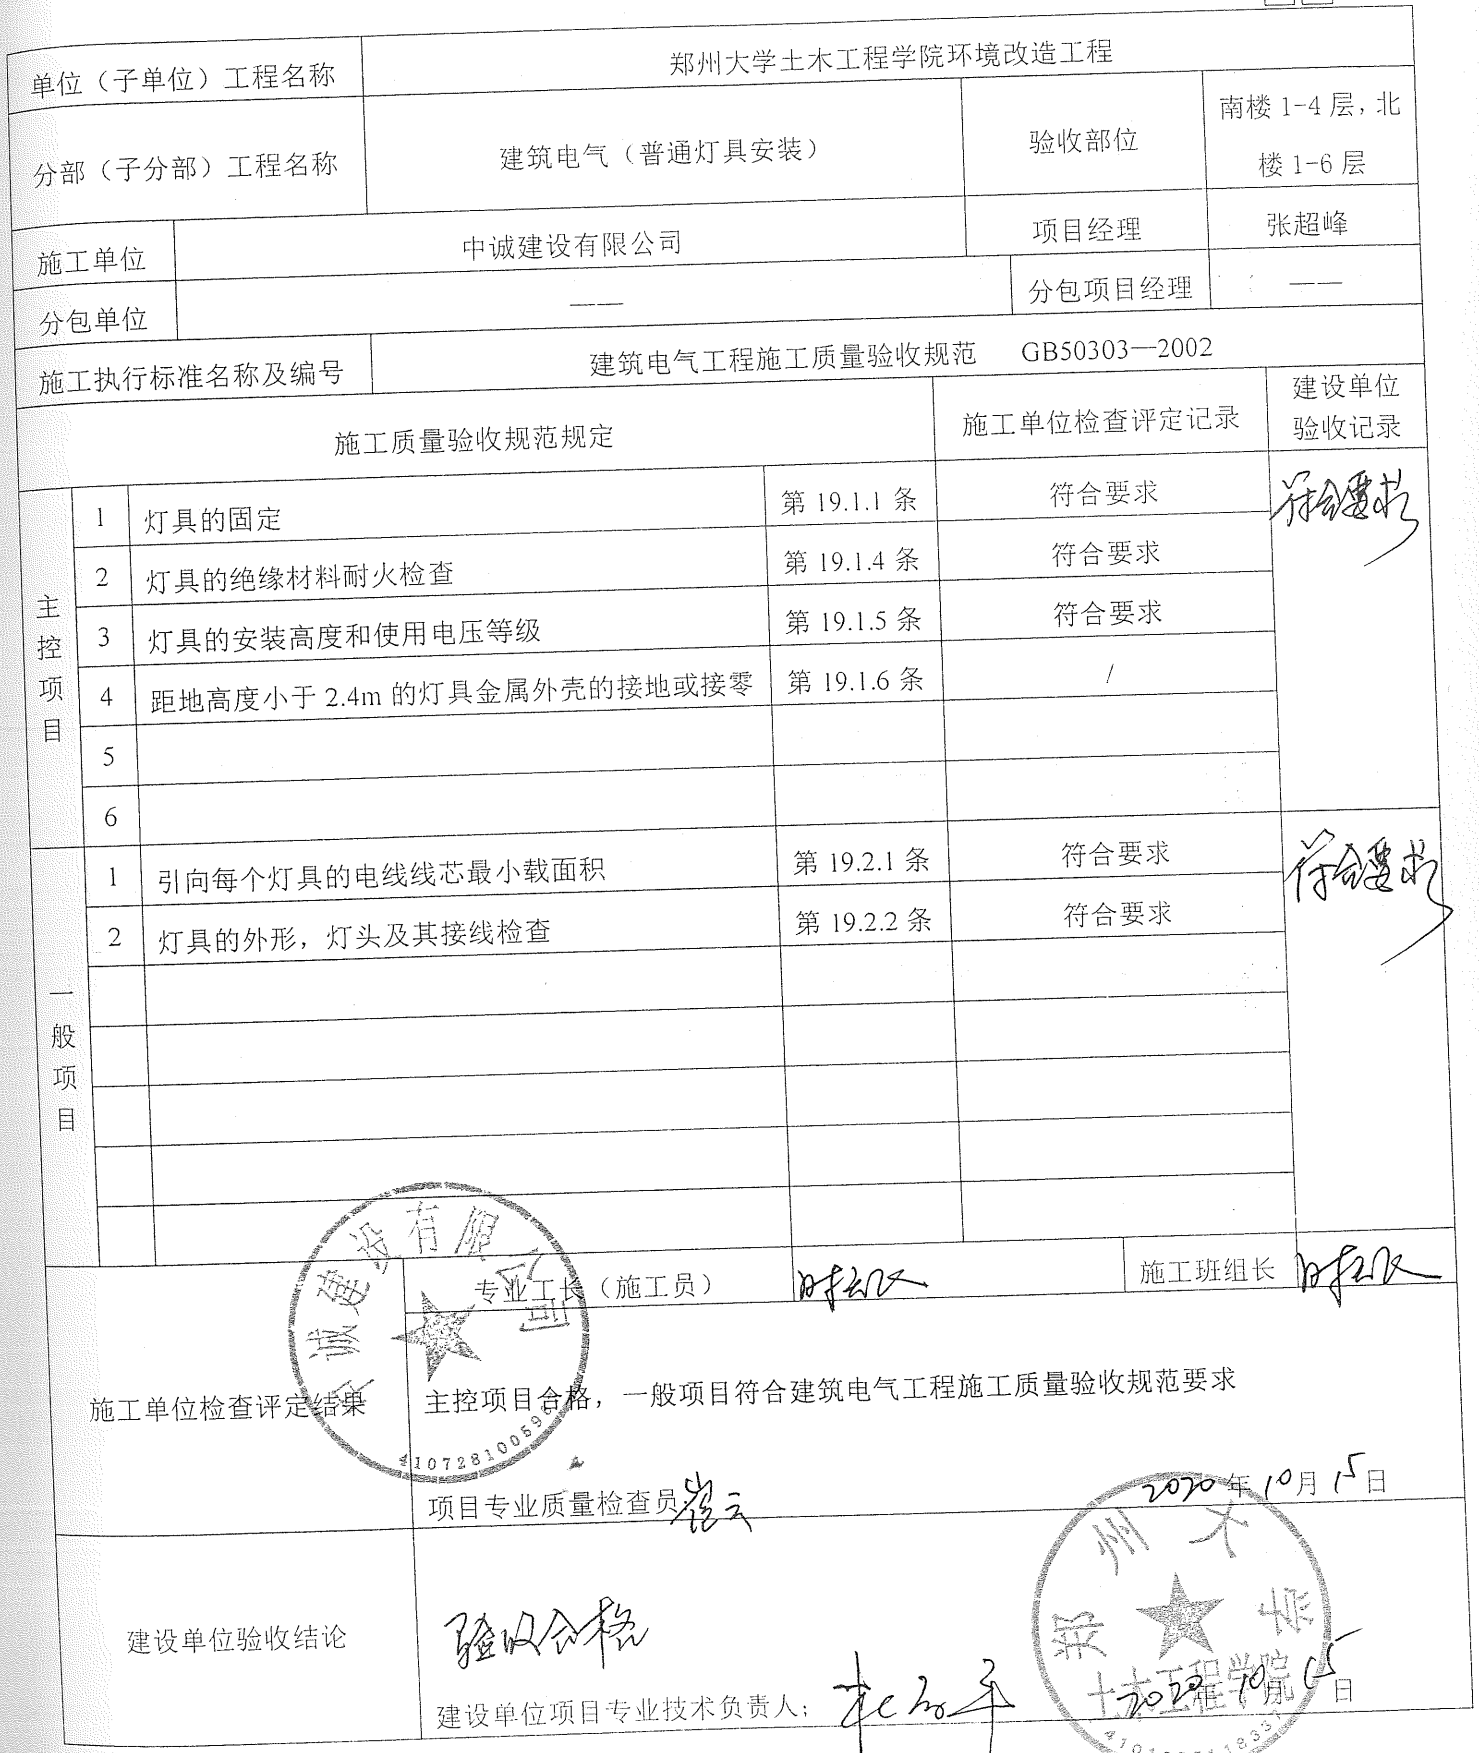 单位（子单位）工程名称 郑州大学土木工程学院环境改造工程
分部（子分部）工程名称 建筑电气（普通灯具安装） 验收部位 南楼 1-4 层，北
楼 1-6 层
施工单位 中诚建设有限公司 项目经理 张超峰
分包单位 —— 分包项目经理 ——
施工执行标准名称及编号 建筑电气工程施工质量验收规范 GB50303—2002
施工质量验收规范规定 施工单位检查评定记录 建设单位
验收记录
主控项目
1 灯具的固定 第 19.1.1 条 符合要求 符合要求
2 灯具的绝缘材料耐火检查 第 19.1.4 条 符合要求
3 灯具的安装高度和使用电压等级 第 19.1.5 条 符合要求
4 距地高度小于 2.4m 的灯具金属外壳的接地或接零 第 19.1.6 条 /
5
6
一般项目
1 引向每个灯具的电线线芯最小载面积 第 19.2.1 条 符合要求 符合要求
2 灯具的外形，灯头及其接线检查 第 19.2.2 条 符合要求
专业工长（施工员） 施工班组长
施工单位检查评定结果
主控项目合格，一般项目符合建筑电气工程施工质量验收规范要求
项目专业质量检查员 崔云 2020 年 10 月 15 日
建设单位验收结论 验收合格
建设单位项目专业技术负责人： 2020 年 10 月 15 日
诚建设有限公司
郑州大学
土木工程学院